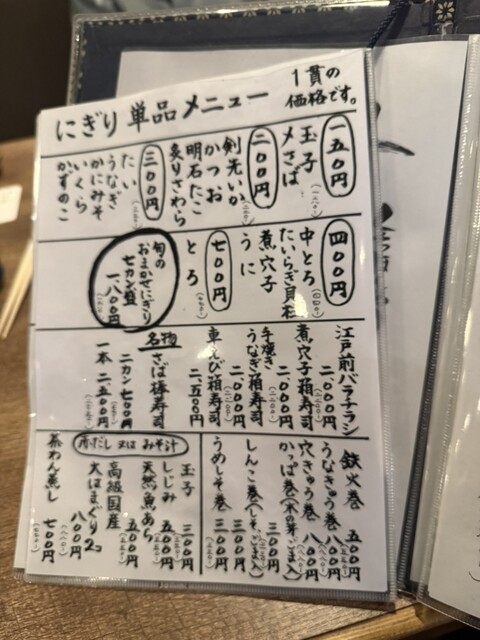 にぎり 単品メニュー
1貫の
価格です。
一五〇円
玉子
〆さば
二〇〇円
剣先いか
かつお
明石たこ
炙りさわら
三〇〇円
たい
うなぎ
かにみそ
いくら
かずのこ
四〇〇円
中とろ
たいらぎ貝柱
煮穴子
うに
七〇〇円
とろ
旬の
おまかせにぎり
七カン盛
一、八〇〇円
江戸前バラチラシ
二、〇〇〇円
煮穴子箱寿司
二、〇〇〇円
手焼き
うなぎ箱寿司
二、〇〇〇円
車えび箱寿司
二、五〇〇円
名物
さば棒寿司
二カン 七〇〇円
一本 二、五〇〇円
鉄火巻 五〇〇円
うなきゅう巻 八〇〇円
穴きゅう巻 八〇〇円
かっぱ巻(木の芽、ごま入) 三〇〇円
しんこ巻(しそ、ごま入) 三〇〇円
うめしそ巻 三〇〇円
赤だし 又は みそ汁
玉子 三〇〇円
しじみ 五〇〇円
天然魚あら 五〇〇円
高級国産
大はまぐり2コ 八〇〇円
茶わん蒸し 七〇〇円